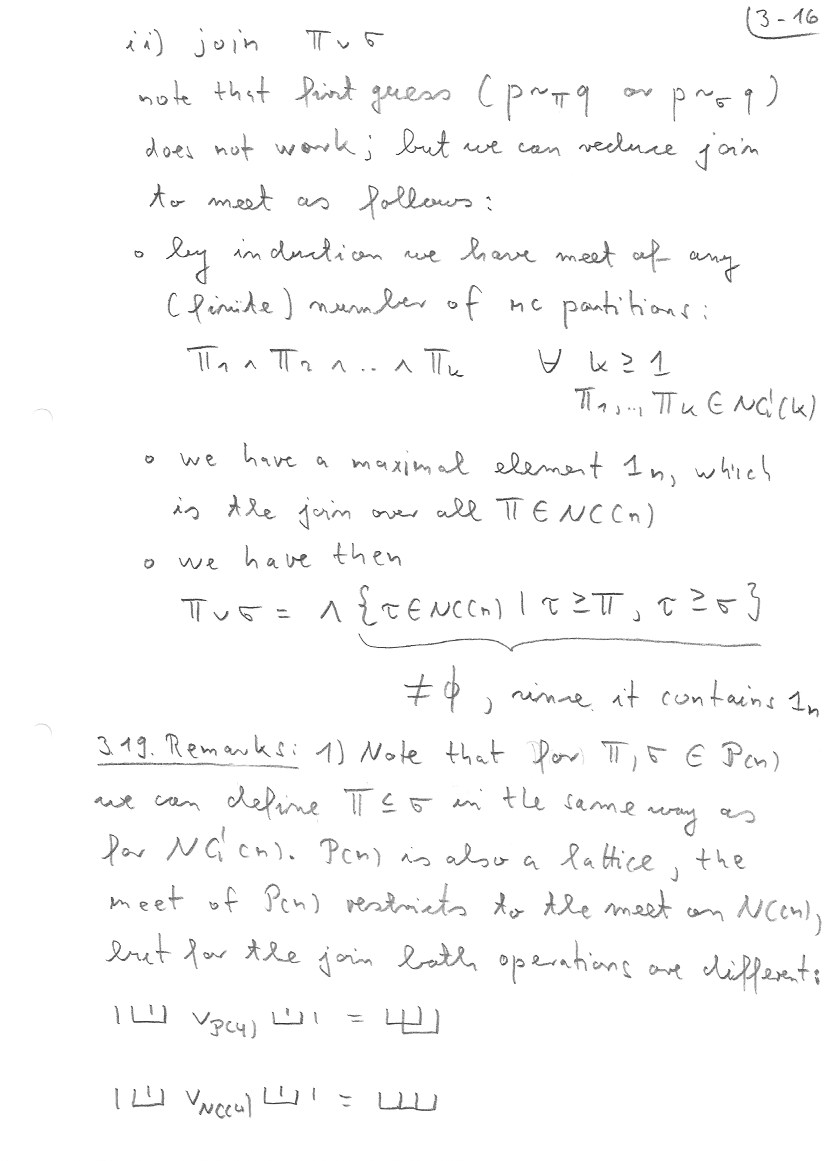 (3-16
ii) join π ∨ σ
note that first guess (p ~π q or p ~σ q)
does not work; but we can reduce join
to meet as follows:
o by induction we have meet of any
(finite) number of nc partitions:
π₁ ∧ π₂ ∧ .. ∧ πₖ ∀ k ≥ 1
π₁,.., πₖ ∈ NC(k)
o we have a maximal element 1ₙ, which
is the join over all π ∈ NC(n)
o we have then
π ∨ σ = ∧ {τ ∈ NC(n) | τ ≥ π, τ ≥ σ}
≠ ∅, since it contains 1ₙ
3.19. Remarks: 1) Note that for π, σ ∈ P(n)
we can define π ≤ σ in the same way as
for NC(n). P(n) is also a lattice, the
meet of P(n) restricts to the meet on NC(n),
but for the join both operations are different:
∨P(4) =
∨NC(4) =